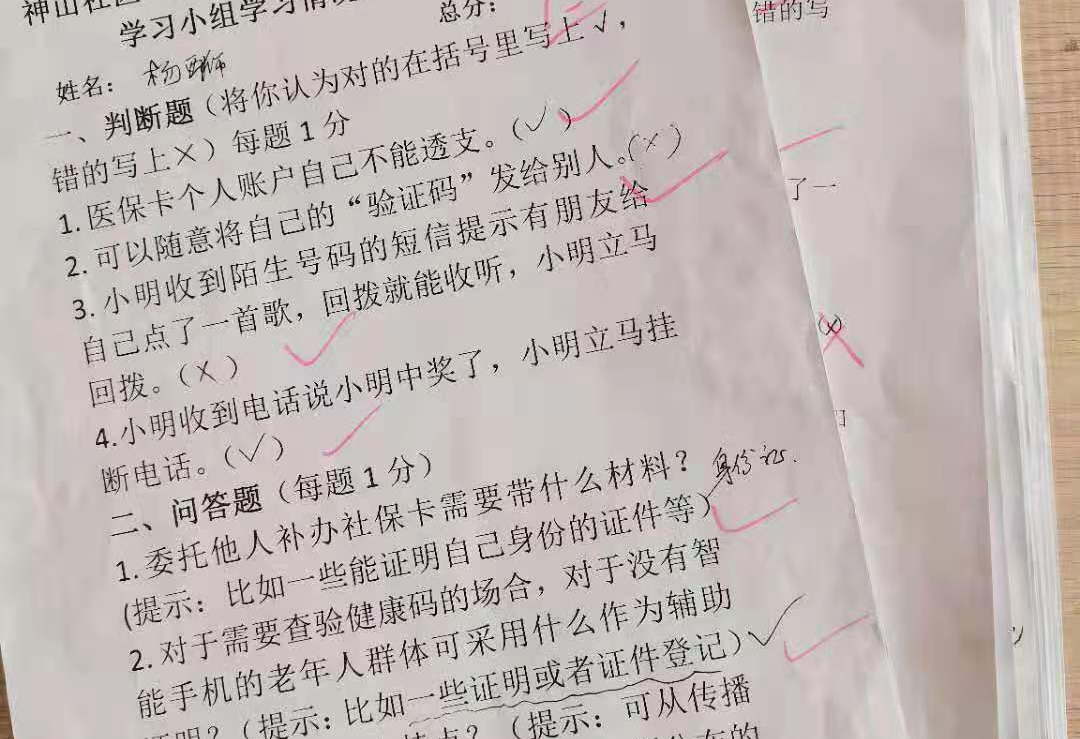 神山社区
学习小组学习情况
总分：
姓名： 杨
一、判断题（将你认为对的在括号里写上√，
错的写上×）每题1分
1.医保卡个人账户自己不能透支。（√）
2.可以随意将自己的“验证码”发给别人。（×）
3.小明收到陌生号码的短信提示有朋友给
自己点了一首歌，回拨就能收听，小明立马
回拨。（×）
4.小明收到电话说小明中奖了，小明立马挂
断电话。（√）
二、问答题（每题1分）
1.委托他人补办社保卡需要带什么材料？ 身份证.
(提示：比如一些能证明自己身份的证件等）
2.对于需要查验健康码的场合，对于没有智
能手机的老年人群体可采用什么作为辅助
证明？（提示：比如一些证明或者证件登记）√
（提示：可从传播
错的写
了一
(×)